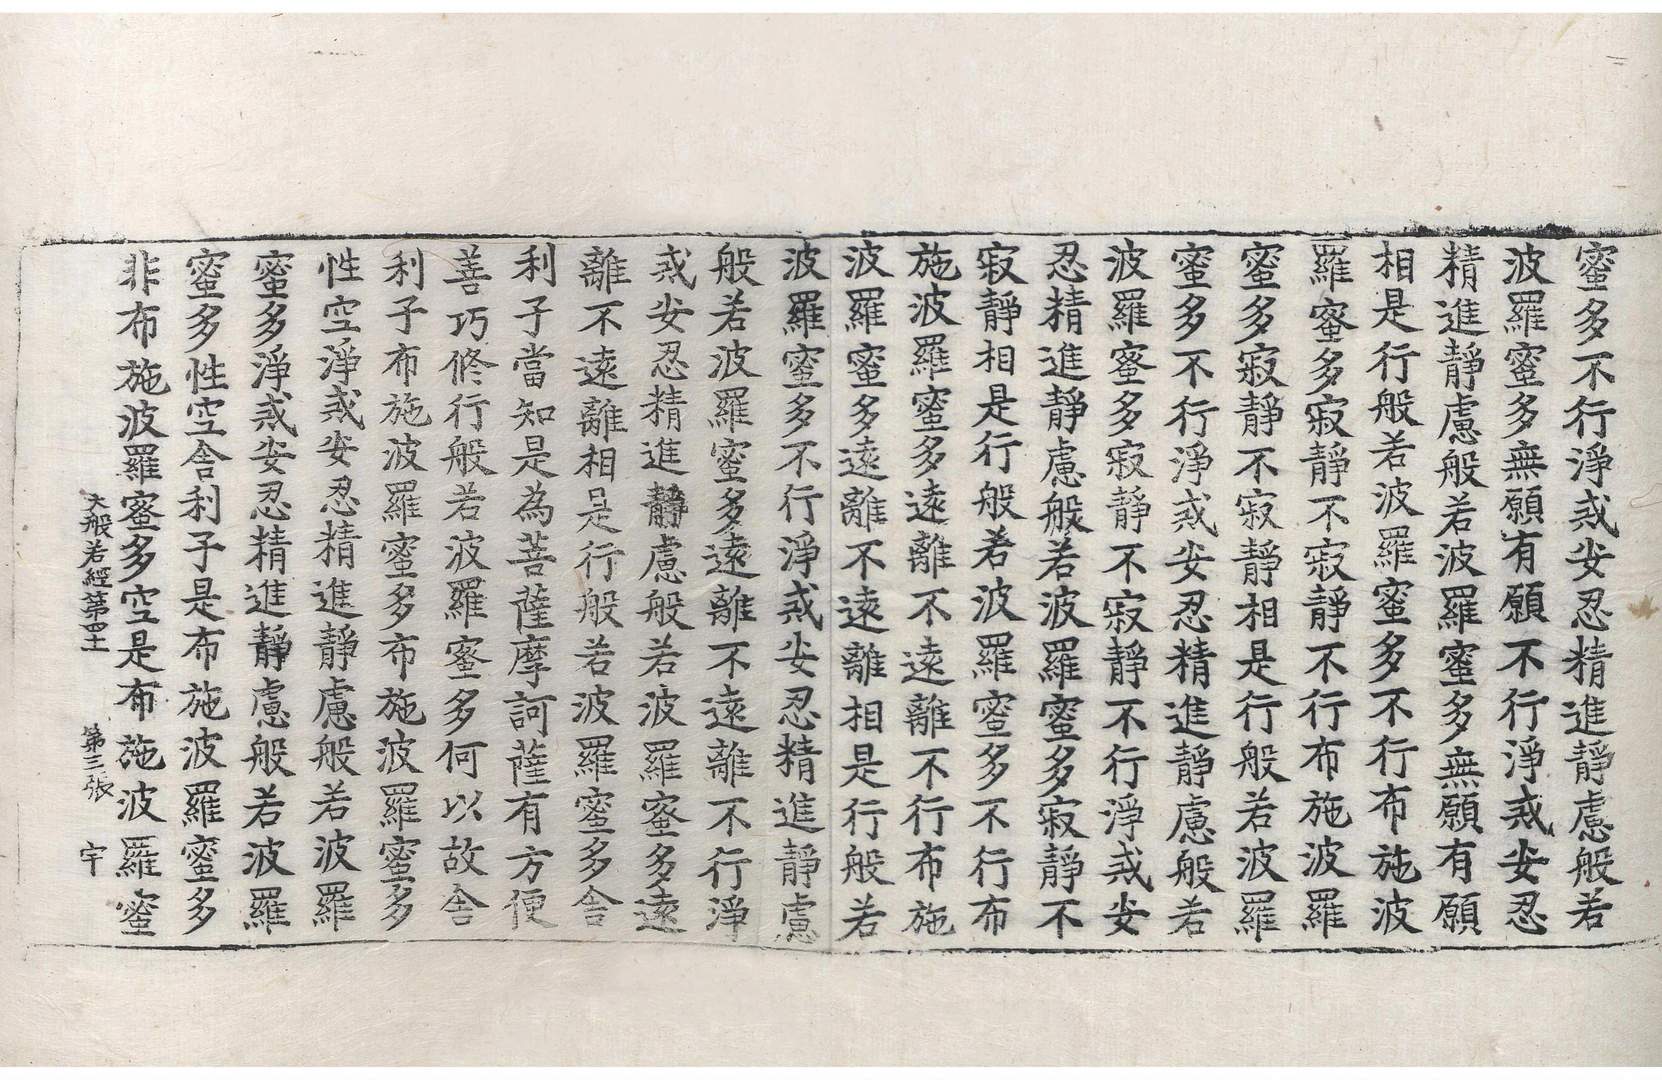 蜜多不行淨戒安忍精進靜慮般若
波羅蜜多無願有願不行淨戒安忍
精進靜慮般若波羅蜜多無願有願
相是行般若波羅蜜多不行布施波
羅蜜多寂靜不寂靜不行布施波羅
蜜多寂靜不寂靜相是行般若波羅
蜜多不行淨戒安忍精進靜慮般若
波羅蜜多寂靜不寂靜不行淨戒安
忍精進靜慮般若波羅蜜多寂靜不
寂靜相是行般若波羅蜜多不行布
施波羅蜜多遠離不遠離不行布施
波羅蜜多遠離不遠離相是行般若
波羅蜜多不行淨戒安忍精進靜慮
般若波羅蜜多遠離不遠離不行淨
戒安忍精進靜慮般若波羅蜜多遠
離不遠離相是行般若波羅蜜多舍
利子當知是為菩薩摩訶薩有方便
善巧修行般若波羅蜜多何以故舍
利子布施波羅蜜多布施波羅蜜多
性空淨戒安忍精進靜慮般若波羅
蜜多淨戒安忍精進靜慮般若波羅
蜜多性空舍利子是布施波羅蜜多
非布施波羅蜜多空是布施波羅蜜
大般若經第四十一 第三張 宇